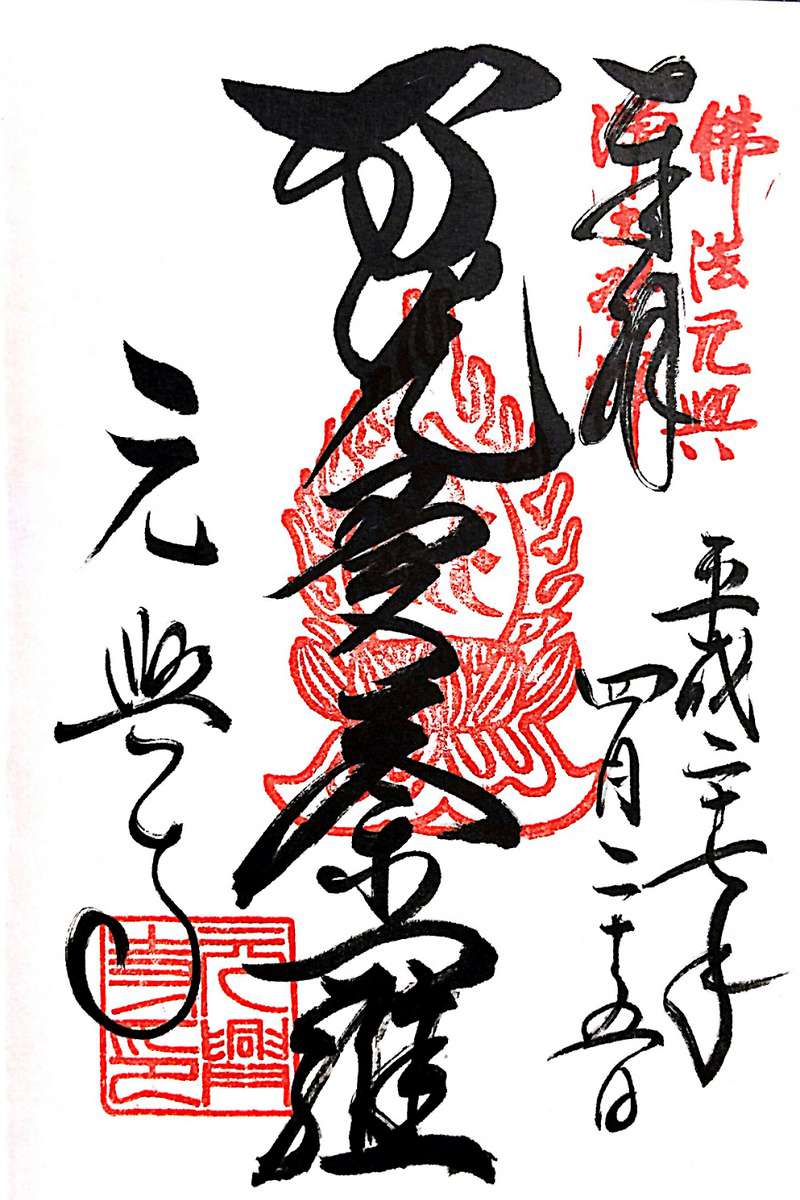 佛法元興
浄土發祥
奉拝
平成二十七年
四月二十五日
智光曼荼羅
元興寺